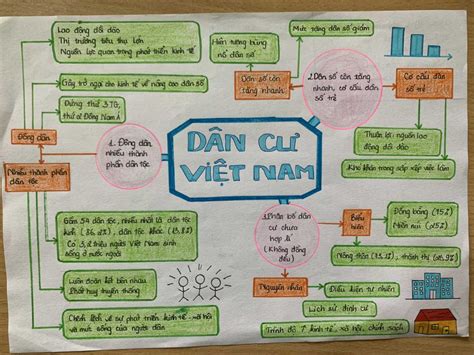 Lao động dồi dào
Thị trường tiêu thụ lớn
Nguồn lực quan trọng phát triển kinh tế
Gây trở ngại cho kinh tế về nâng cao dân số
Đứng thứ 3 TG,
thứ Đông Nam Á
Đông dân
Nhiều thành phần
dân tộc
1. Đông dân,
nhiều thành
phần dân tộc
Gồm 54 dân tộc, nhiều nhất là dân tộc
kinh dân tộc khác
Có 3,2 triệu người Việt Nam sinh
sống ở nước ngoài
Luôn đoàn kết bên nhau
Phát huy truyền thống
Chênh lệch về sự phát triển kinh tế - xã hội
và mức sống của người dân
DÂN CƯ
VIỆT NAM
Hiện tượng bùng
nổ dân số
Mức tăng dân số giảm
Dân số còn
tăng nhanh
2. Dân số còn tăng
nhanh, cơ cấu dân
số trẻ
Cơ cấu dân
số trẻ
Thuận lợi: nguồn lao
động dồi dào
Khó khăn trong sắp xếp việc làm
3. Phân bố dân
cư chưa
hợp lí
(Không đồng
đều)
Biểu
hiện
Đồng bằng (75%)
Miền núi (25%)
Nông thôn thành thị
Nguyên nhân
Điều kiện tự nhiên
Lịch sử định cư
Trình độ kinh tế, xã hội, chính sách